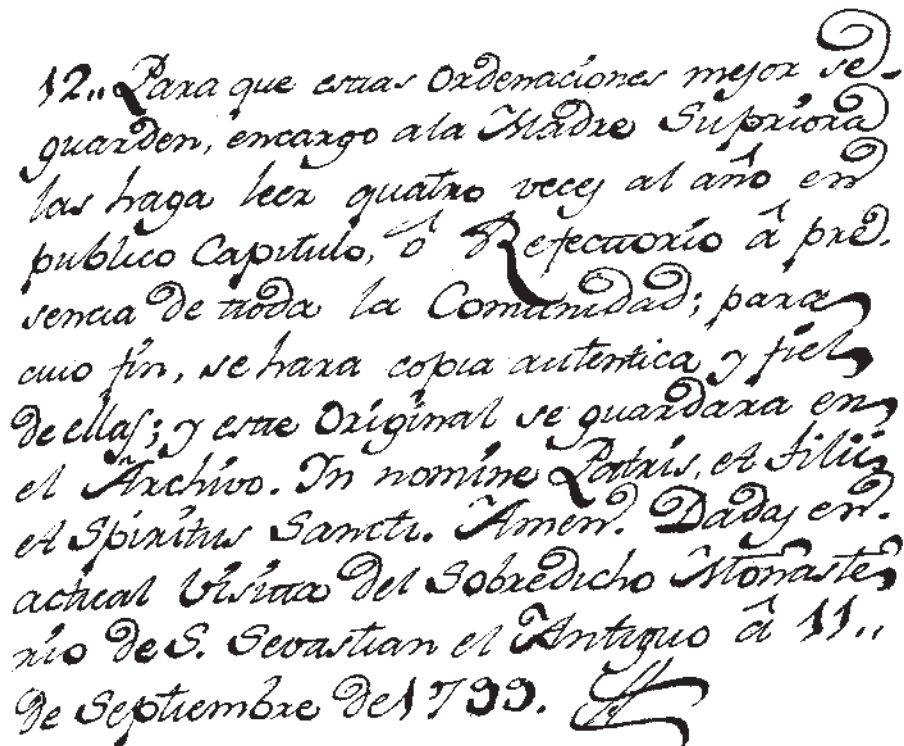 12,, Para que esttas Ordenaciones mejor se-
guarden, encargo ala Madre Supriora
las haga leer quatro veces al año en
publico Capitulo, ô Refecttorio â pre-
sencia de ttoda la Comunidad; para
cuio fin, se hara copia autentica y fiel
de ellas; y estte Original se guardara en
el Archivo. In nomine Patris, et Filii
et Spiritus Sancti. Amen. Dadas en
actual Visitta del Sobredicho Monaste
rio de S. Sevastian el Antiguo â 11,,
de Septiembre de 1799.